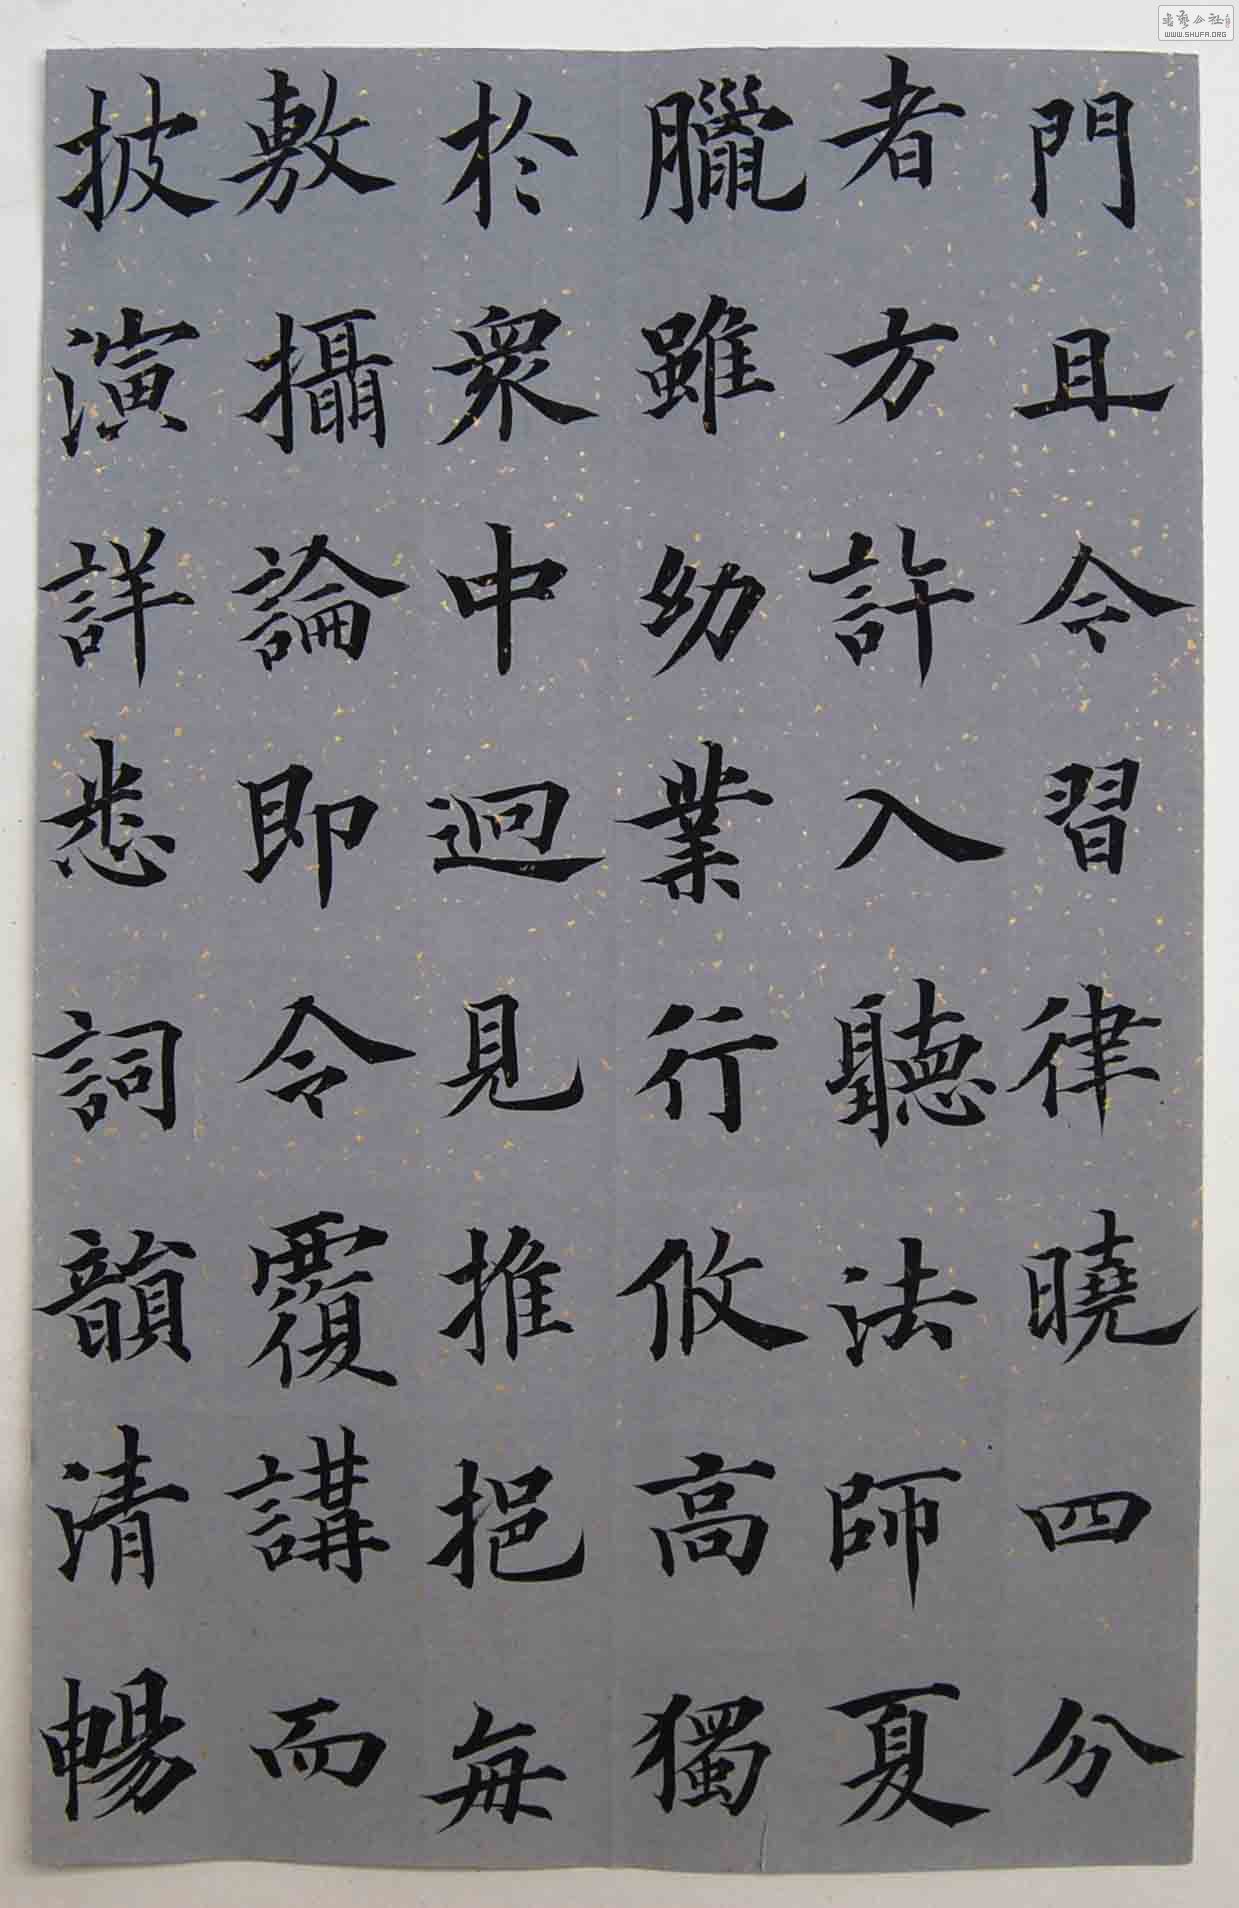 門且令習律曉四分
者方許入聽法師夏
臘雖幼業行攸高獨
於衆中迥見推挹每
敷攝論即令覆講而
披演詳悉詞韻清暢
WWW.SHUFA.ORG